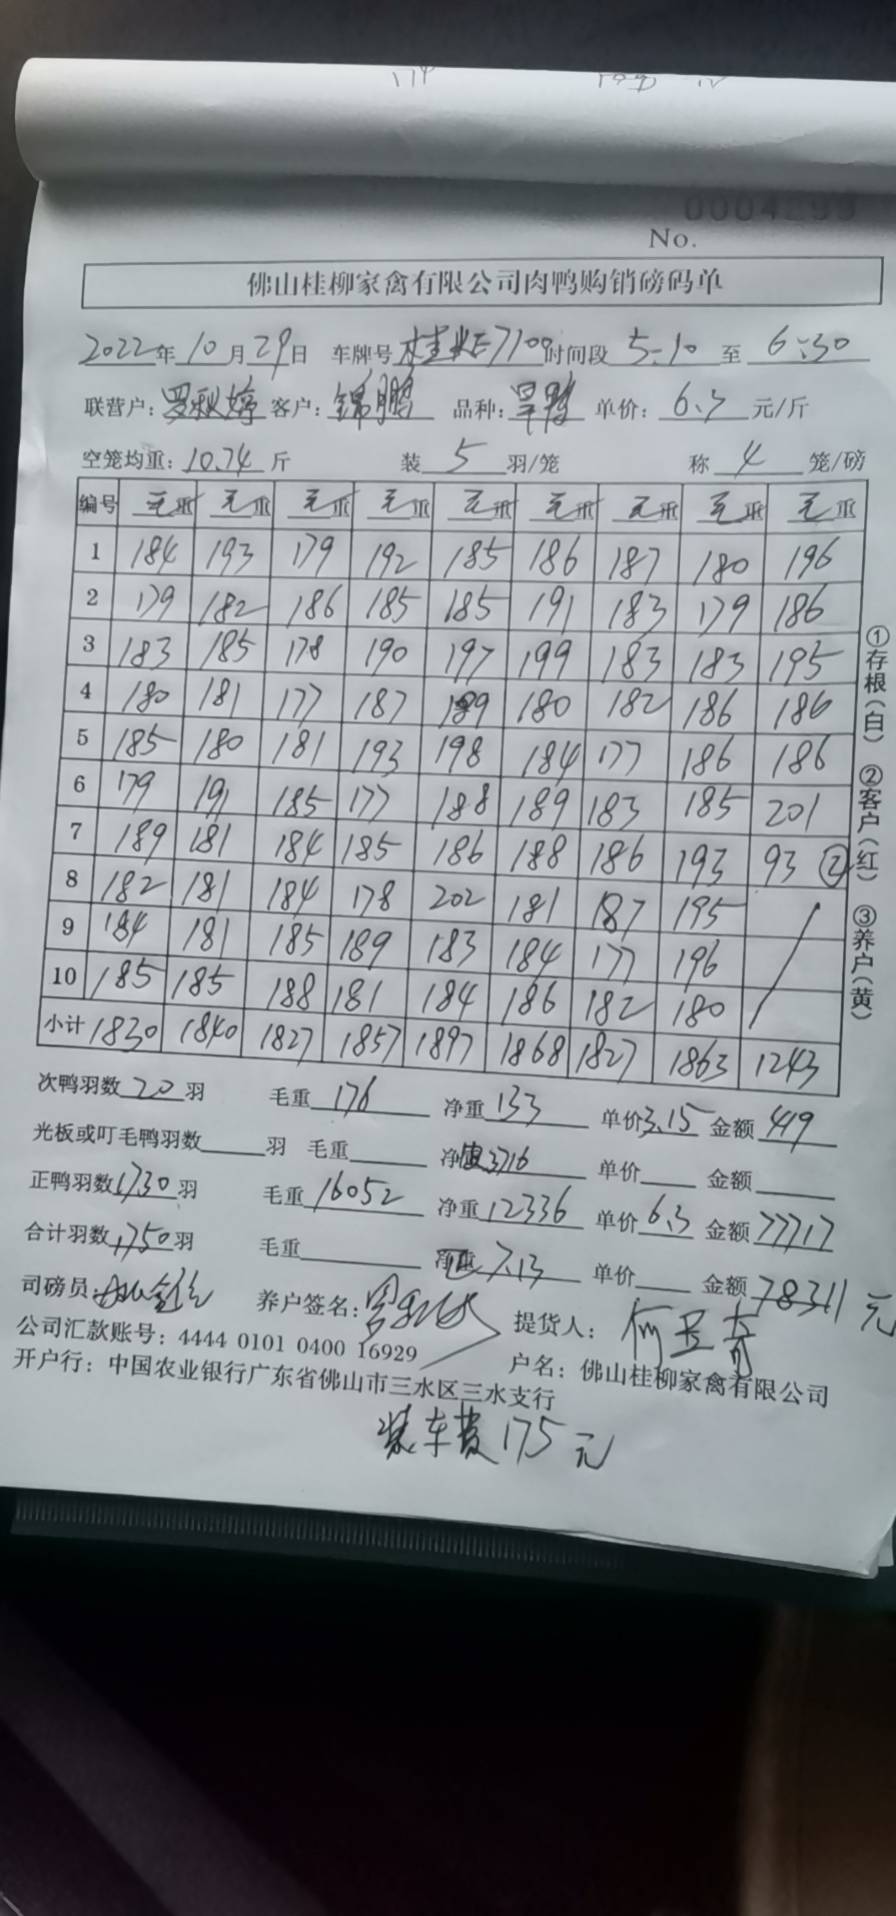 0004299
No.
佛山桂柳家禽有限公司肉鸭购销磅码单
2022年10月29日 车牌号 桂 7100 时间段 5:10 至 6:30
联营户: 罗秋婷 客户: 锦鹏 品种: 旱鸭 单价: 6.3 元/斤
空笼均重: 10.74 斤 装 5 羽/笼 称 4 笼/磅
编号 毛重 毛重 毛重 毛重 毛重 毛重 毛重 毛重 毛重
1 184 193 179 192 185 186 187 180 196
2 179 182 186 185 185 191 183 179 186
3 183 185 178 190 197 199 183 183 195
4 180 181 177 187 189 180 182 186 186
5 185 180 181 193 198 184 177 186 186
6 179 191 185 177 188 189 183 185 201
7 189 181 184 185 186 188 186 193 93 ②
8 182 181 184 178 202 181 187 195
9 184 181 185 189 183 184 177 196
10 185 185 188 181 184 186 182 180
小计 1830 1840 1827 1857 1897 1868 1827 1863 1243
①存根(白) ②客户(红) ③养户(黄)
次鸭羽数 20 羽 毛重 176 净重 133 单价 3.15 金额 419
光板或叮毛鸭羽数 羽 毛重 净 3716 单价 金额
正鸭羽数 1730 羽 毛重 16052 净重 12336 单价 6.3 金额 77717
合计羽数 1750 羽 毛重 7.13 单价 金额 78311 元
司磅员: 养户签名: 提货人:
公司汇款账号: 4444 0101 0400 16929 户名: 佛山桂柳家禽有限公司
开户行: 中国农业银行广东省佛山市三水区三水支行
装车费175元